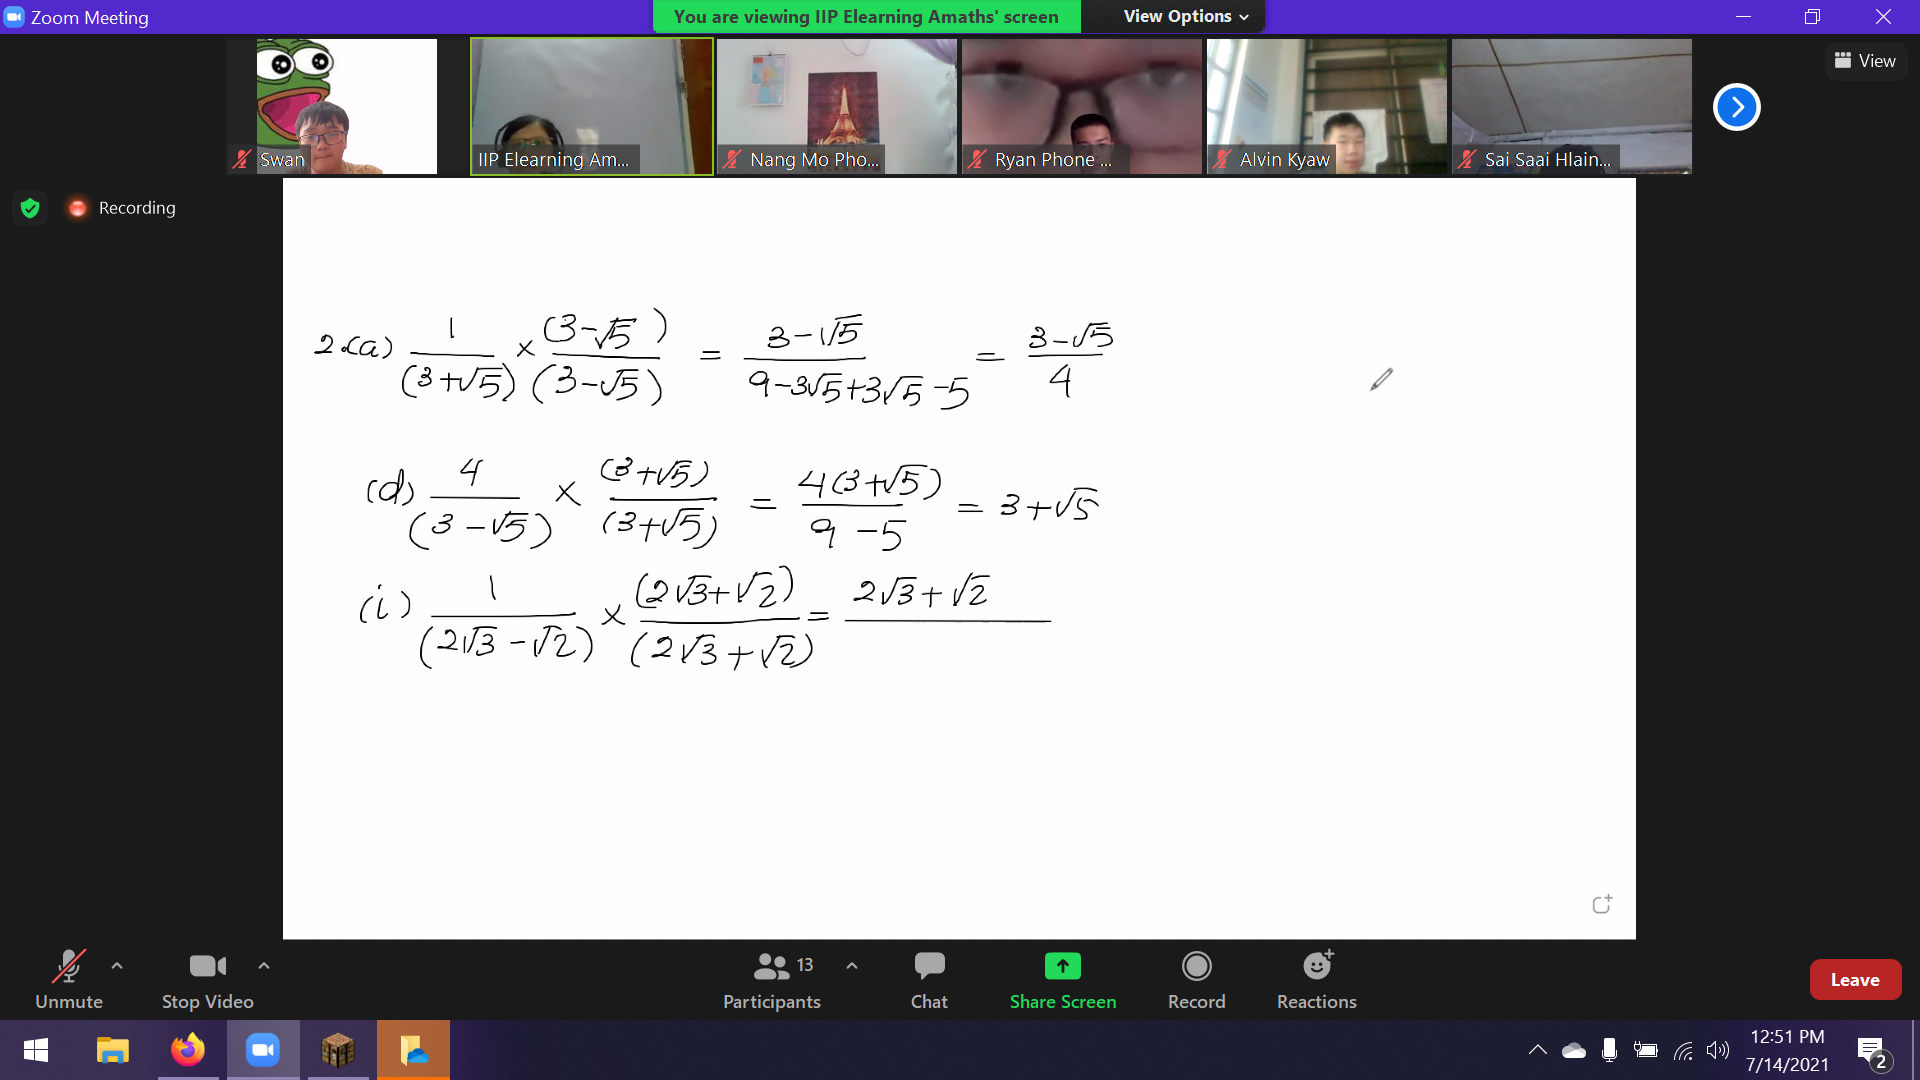 Zoom Meeting
You are viewing IIP Elearning Amaths' screen
View Options
View
Swan
IIP Elearning Am...
Nang Mo Pho...
Ryan Phone ...
Alvin Kyaw
Sai Saai Hlain...
Recording
2.(a) 1/(3+√5) × (3-√5)/(3-√5) = (3-√5)/(9-3√5+3√5-5) = (3-√5)/4
(d) 4/(3-√5) × (3+√5)/(3+√5) = 4(3+√5)/(9-5) = 3+√5
(i) 1/(2√3-√2) × (2√3+√2)/(2√3+√2) = 2√3+√2
Unmute
Stop Video
13
Participants
Chat
Share Screen
Record
Reactions
Leave
12:51 PM
7/14/2021
2